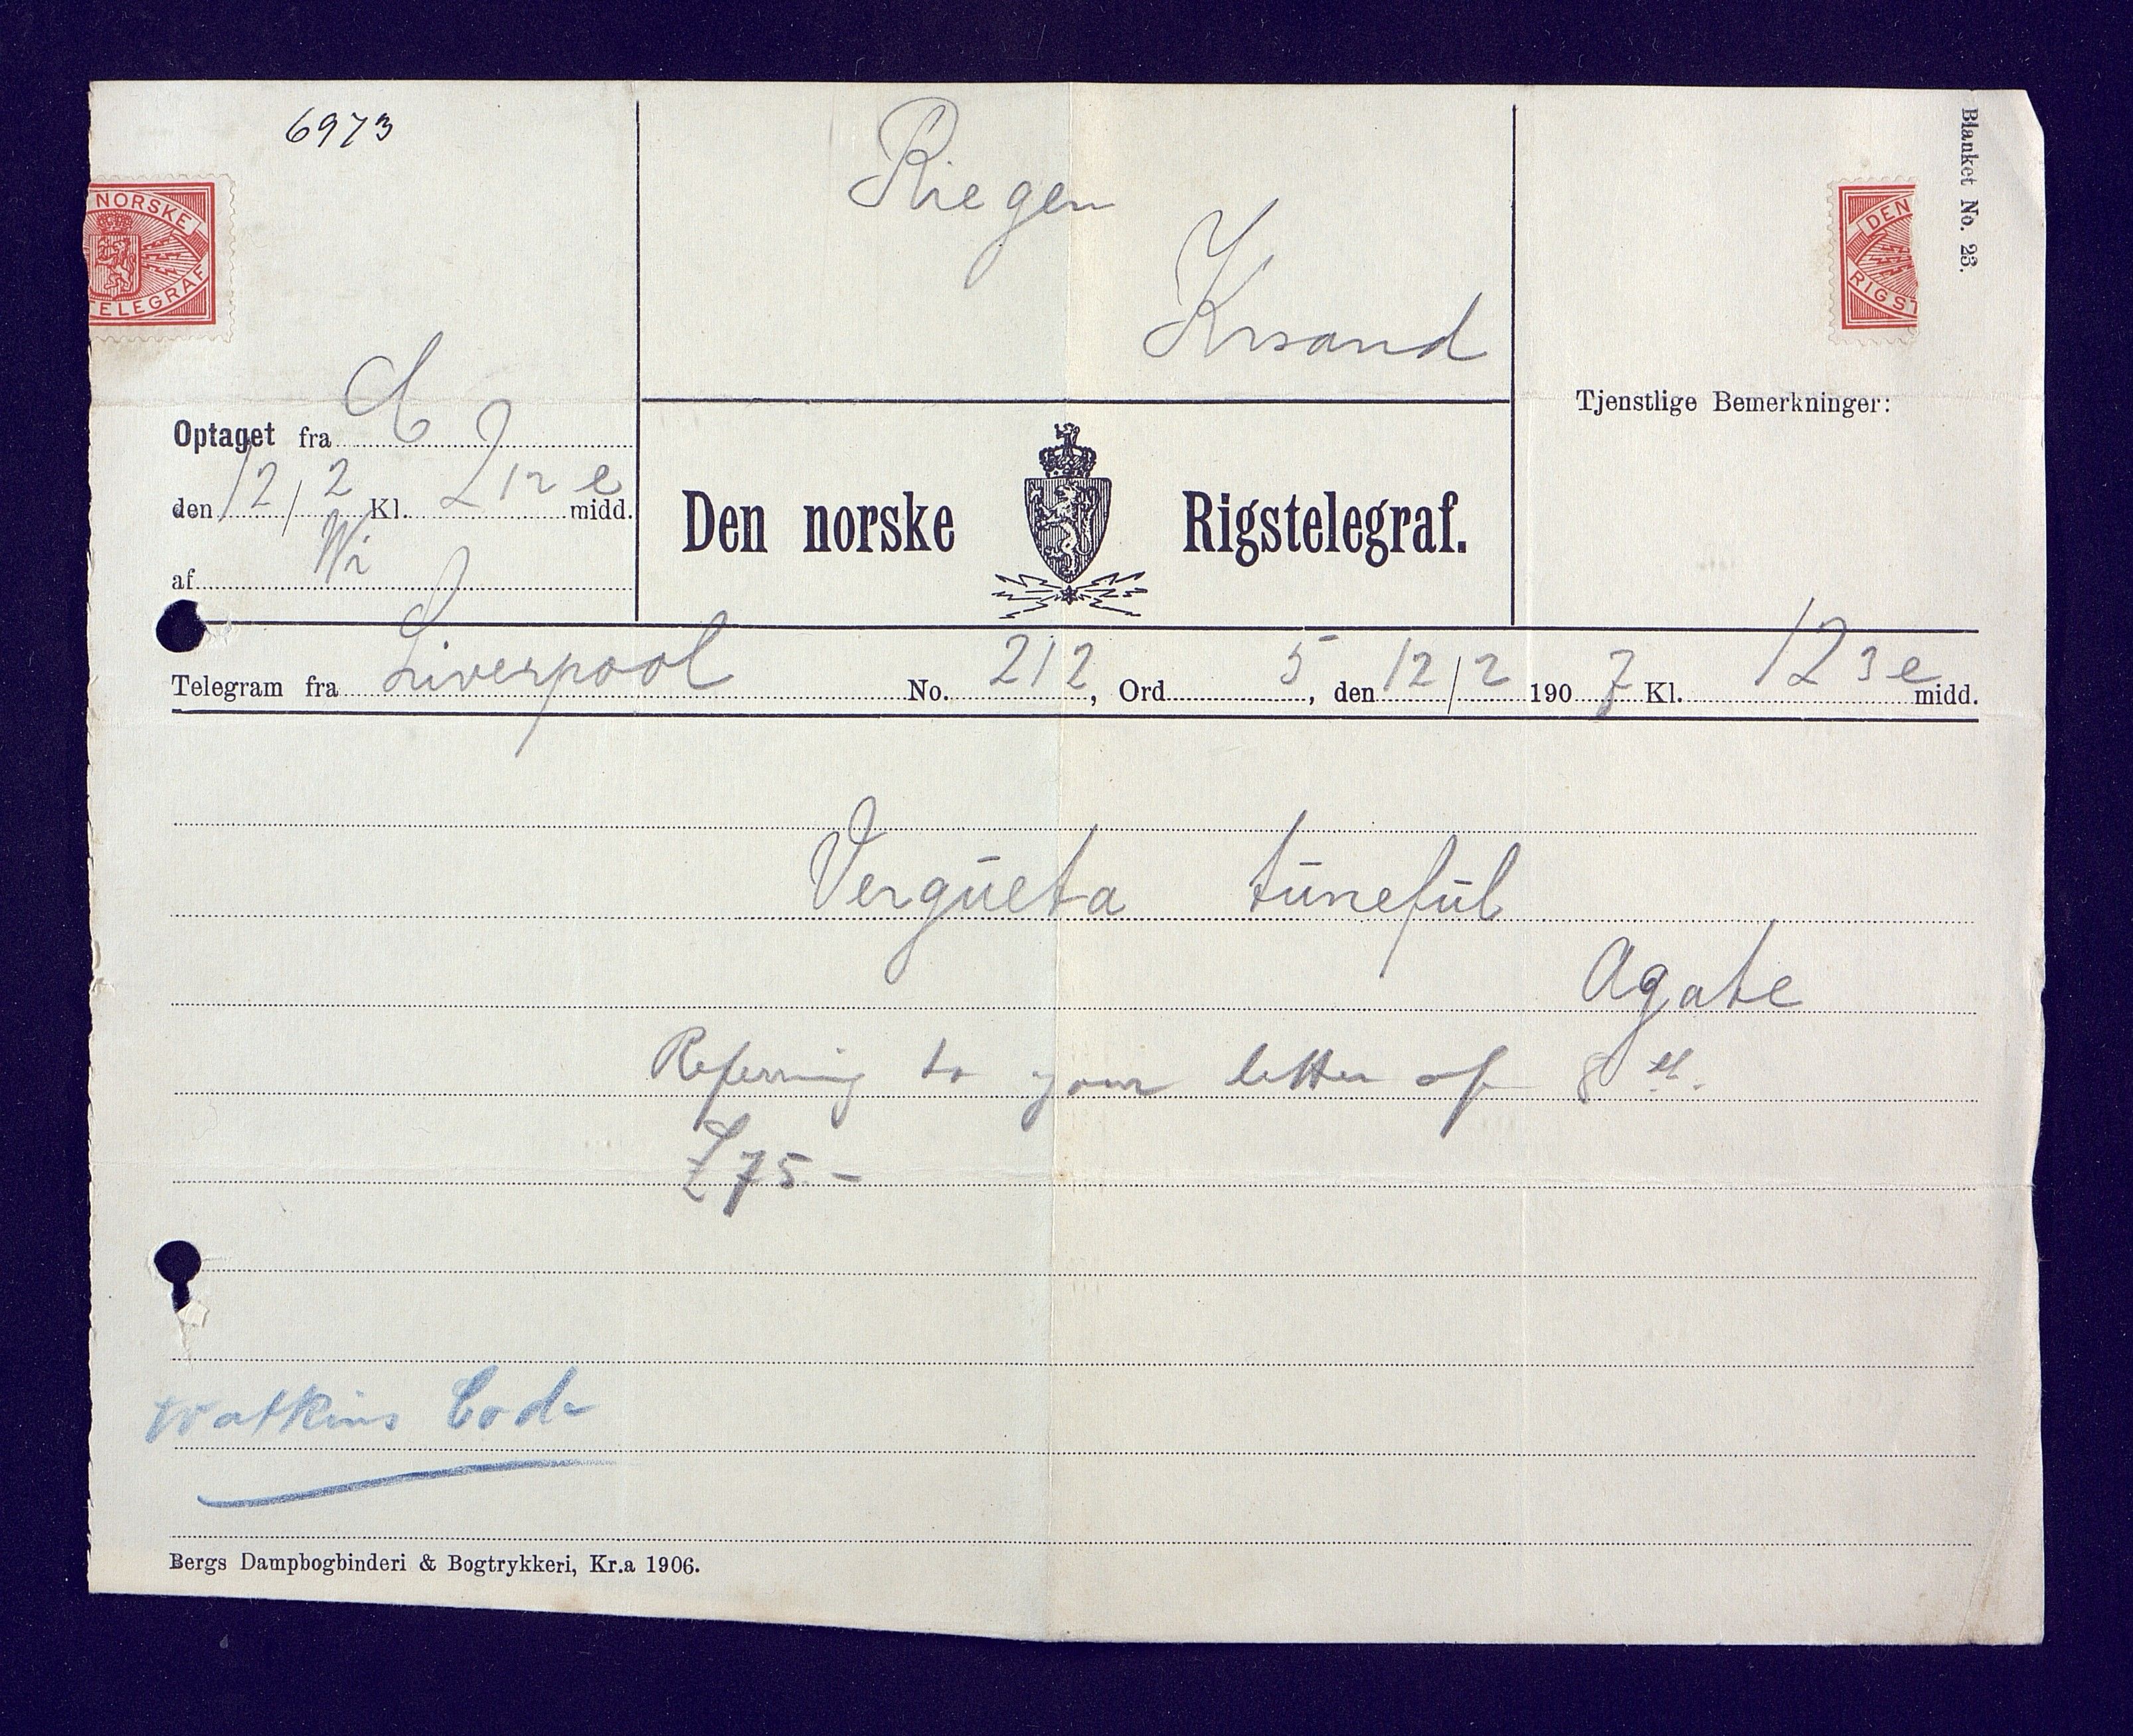 6973
Riegen
Krsand
Blanket No. 23.
NORSKE
TELEGRAF
DEN
RIGST
Optaget fra C
den 12/2 Kl. 2 12 e midd.
af Wi
Den norske Rigstelegraf.
Tjenstlige Bemerkninger:
Telegram fra Liverpool No. 212, Ord 5, den 12/2 1907 Kl. 12 3 e midd.
Vergūeta tūnefūl
Agate
Referring to your letter of 8
£75 –
Watkins Code
Bergs Dampbogbinderi & Bogtrykkeri, Kr.a 1906.